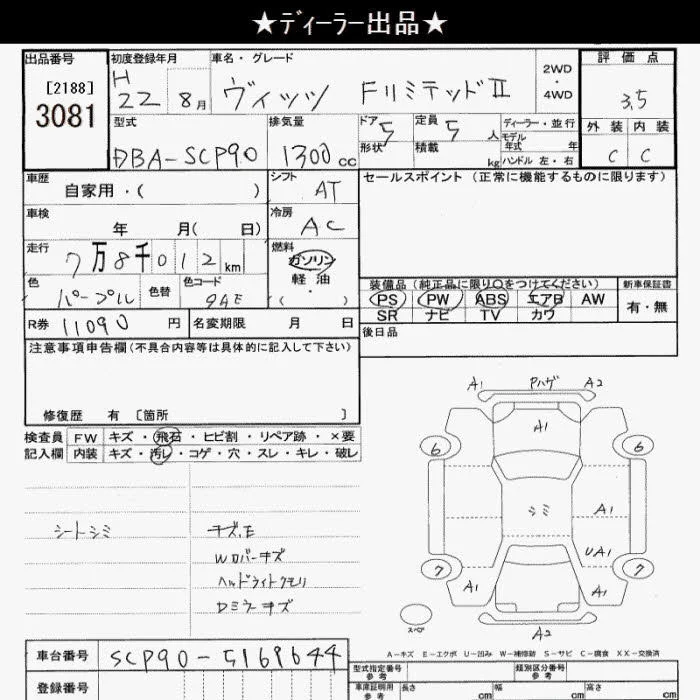 ★ディーラー出品★
出品番号 初度登録年月 車名・グレード 評価点
[2188] H 2WD
3081 22 8月 ヴィッツ FリミテッドⅡ ・ 3.5
4WD
型式 排気量 ドア 5 定員 5 人 ディーラー・並行 外装 内装
モデル
DBA-SCP90 1300cc 形状 積載 kg 年式 年 C C
ハンドル 左・右
車歴 シフト セールスポイント (正常に機能するものに限ります)
自家用・( ) AT
車検 冷房
年 月( 日) AC
走行 燃料
7万8千012km ガソリン
軽油
色 色替 色コード ( ・ ) 装備品 (純正品に限り○をつけてください) 新車保証書
パープル 9AE PS PW ABS エアB AW 有・無
R券 11090 円 名変期限 月 日 SR ナビ TV カワ
注意事項申告欄(不具合内容等は具体的に記入して下さい) 後日品
修復歴 有 [箇所 ]
検査員 FW キズ・飛石・ヒビ割・リペア跡・×要
記入欄 内装 キズ・汚レ・コゲ・穴・スレ・キレ・破レ
A1 Pハゲ A2
A1
6 6
シミ A1
UA1
7 7
A1 A1
スペア
A2
シートシミ キズ.E
Wロバーキズ
ヘッドライトクモリ
Dミラーキズ
A-キズ E-エクボ U-凹み W-補修跡 S-サビ C-腐食 XX-交換済
車台番号 SCP90-5169644
型式指定番号 参考 類別区分番号 参考
登録番号 車庫証明用 参考 長さ cm 幅 cm 高さ cm